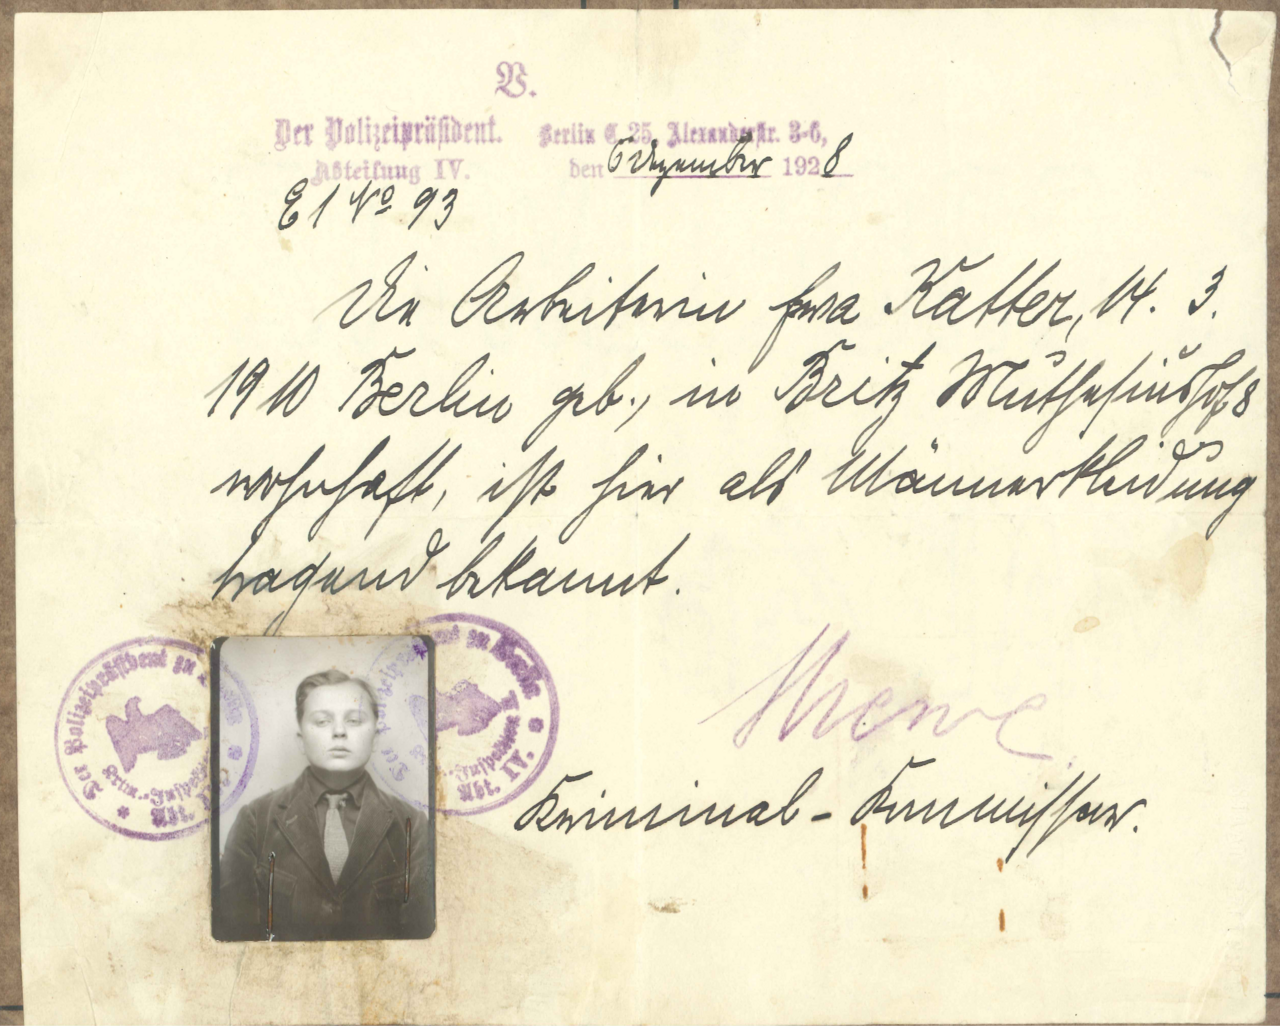 V.
Der Polizeipräsident.
Abteilung IV.
Berlin C. 25, Alexanderstr. 3-6,
den 6 Dezember 1928
E 1 No 93
Die Arbeiterin Eva Katter, 14. 3.
1910 Berlin geb., in Britz Muthesiushof 8
wohnhaft, ist hier als Männerkleidung
tragend bekannt.
Kriminal-Kommissar.
Der Polizeipräsident zu
Krim.-Inspektion
Abt. IV.
Der Polizeipräsident zu Berlin
Krim.-Inspektion
Abt. IV.